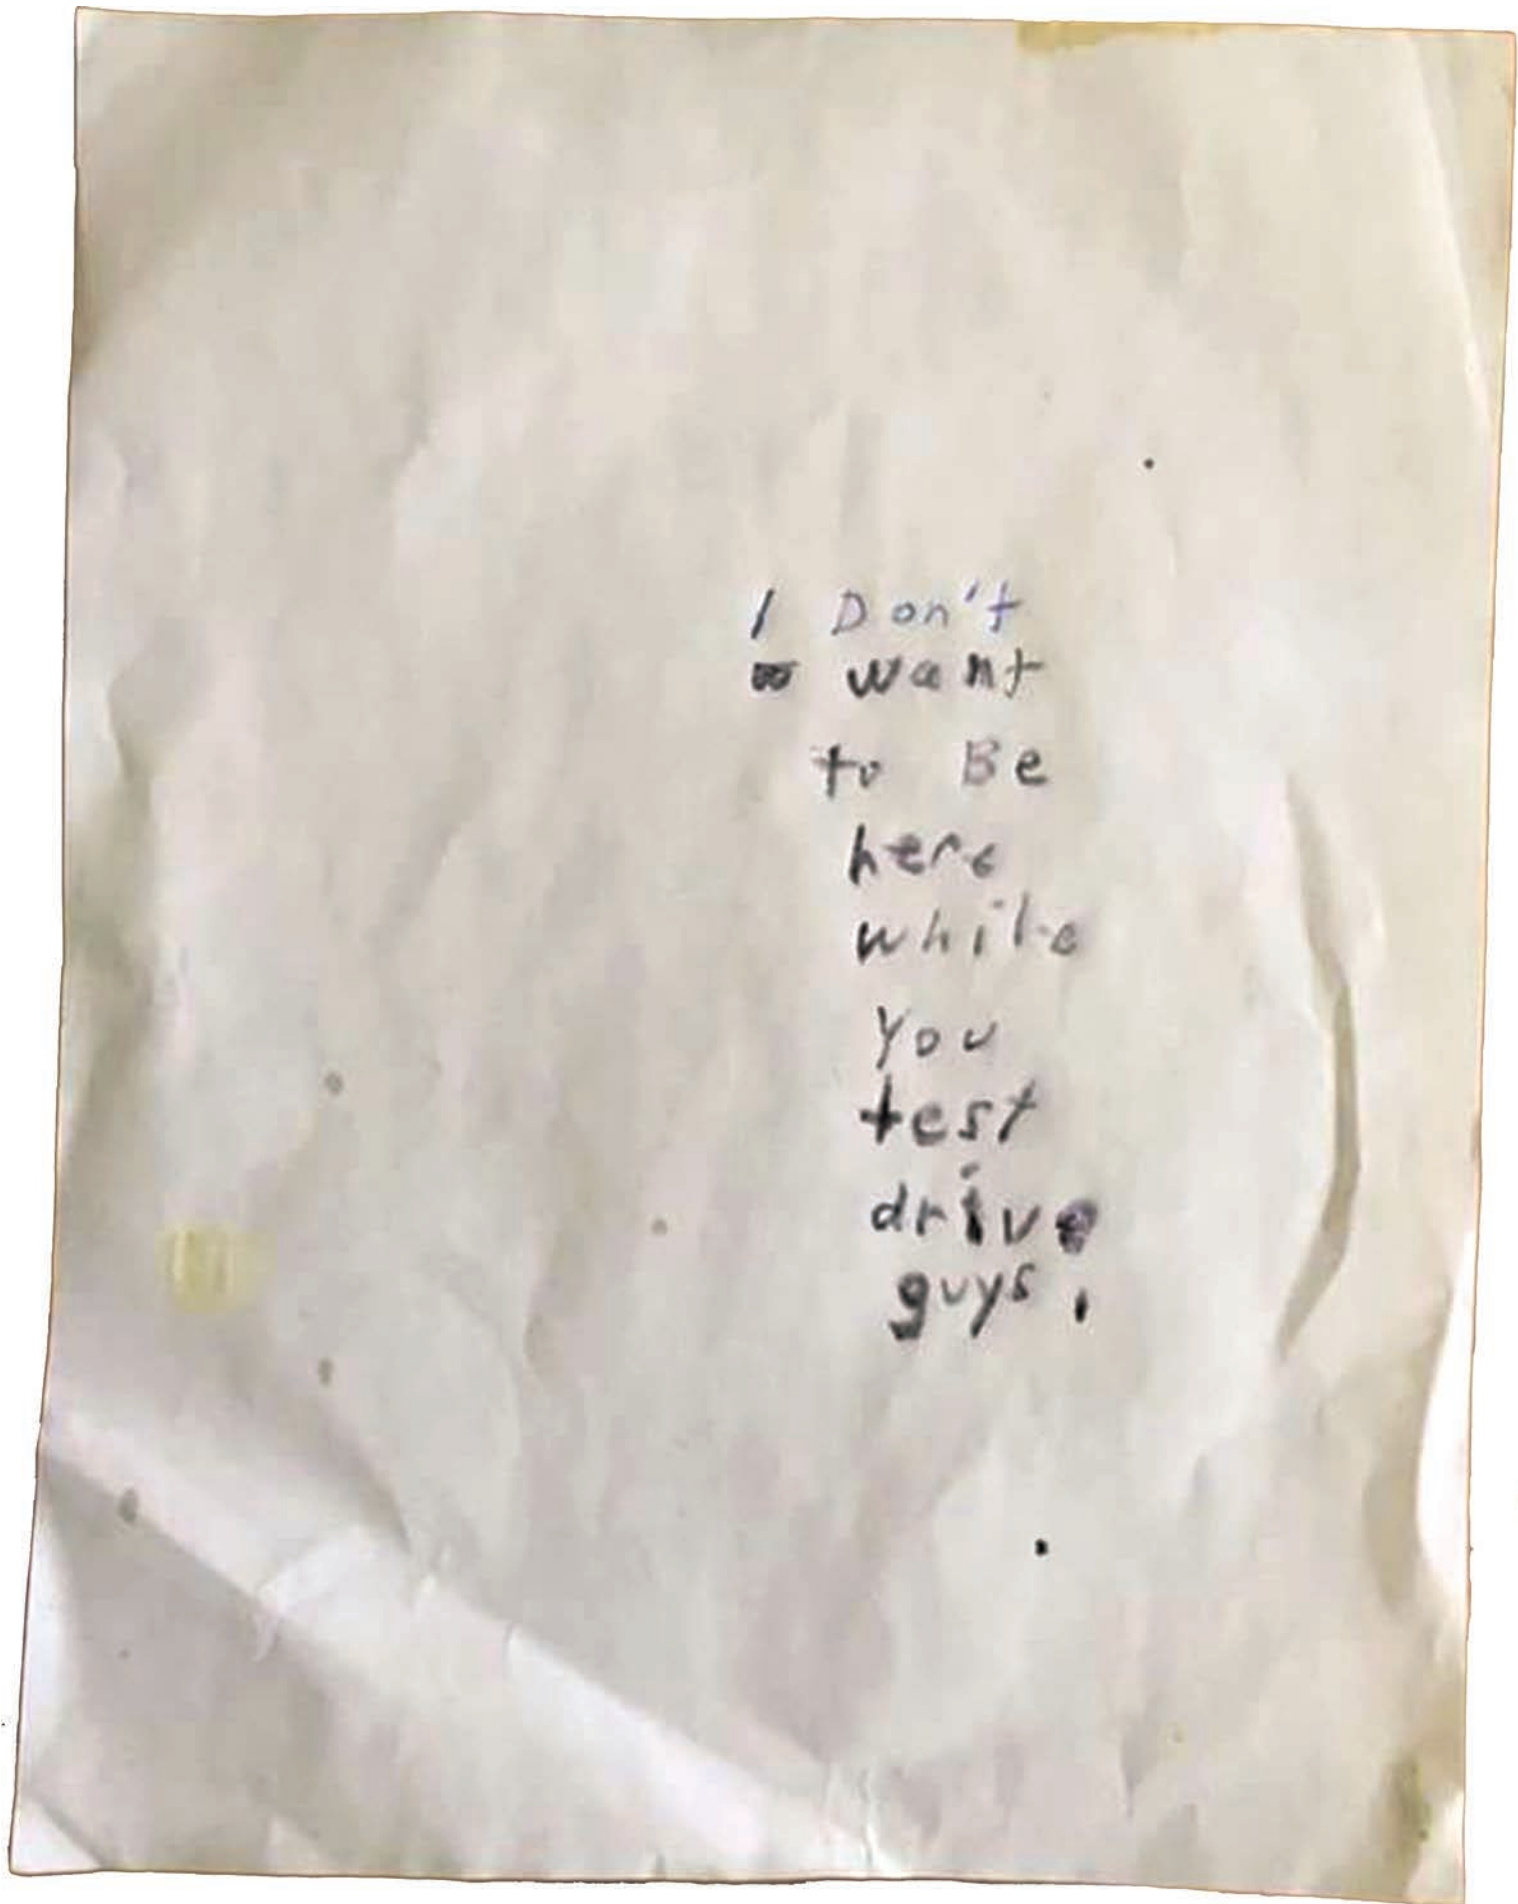 I Don't
want
to Be
here
while
You
test
drive
guys.